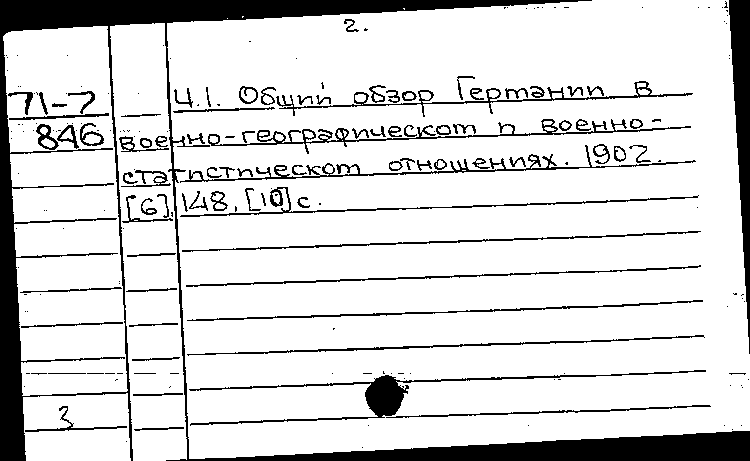 2.
71-7 Ч.1. Общий обзор Германии в
846 военно-географическом и военно-
статистическом отношениях. 1902.
[6], 148, [10] с.
3